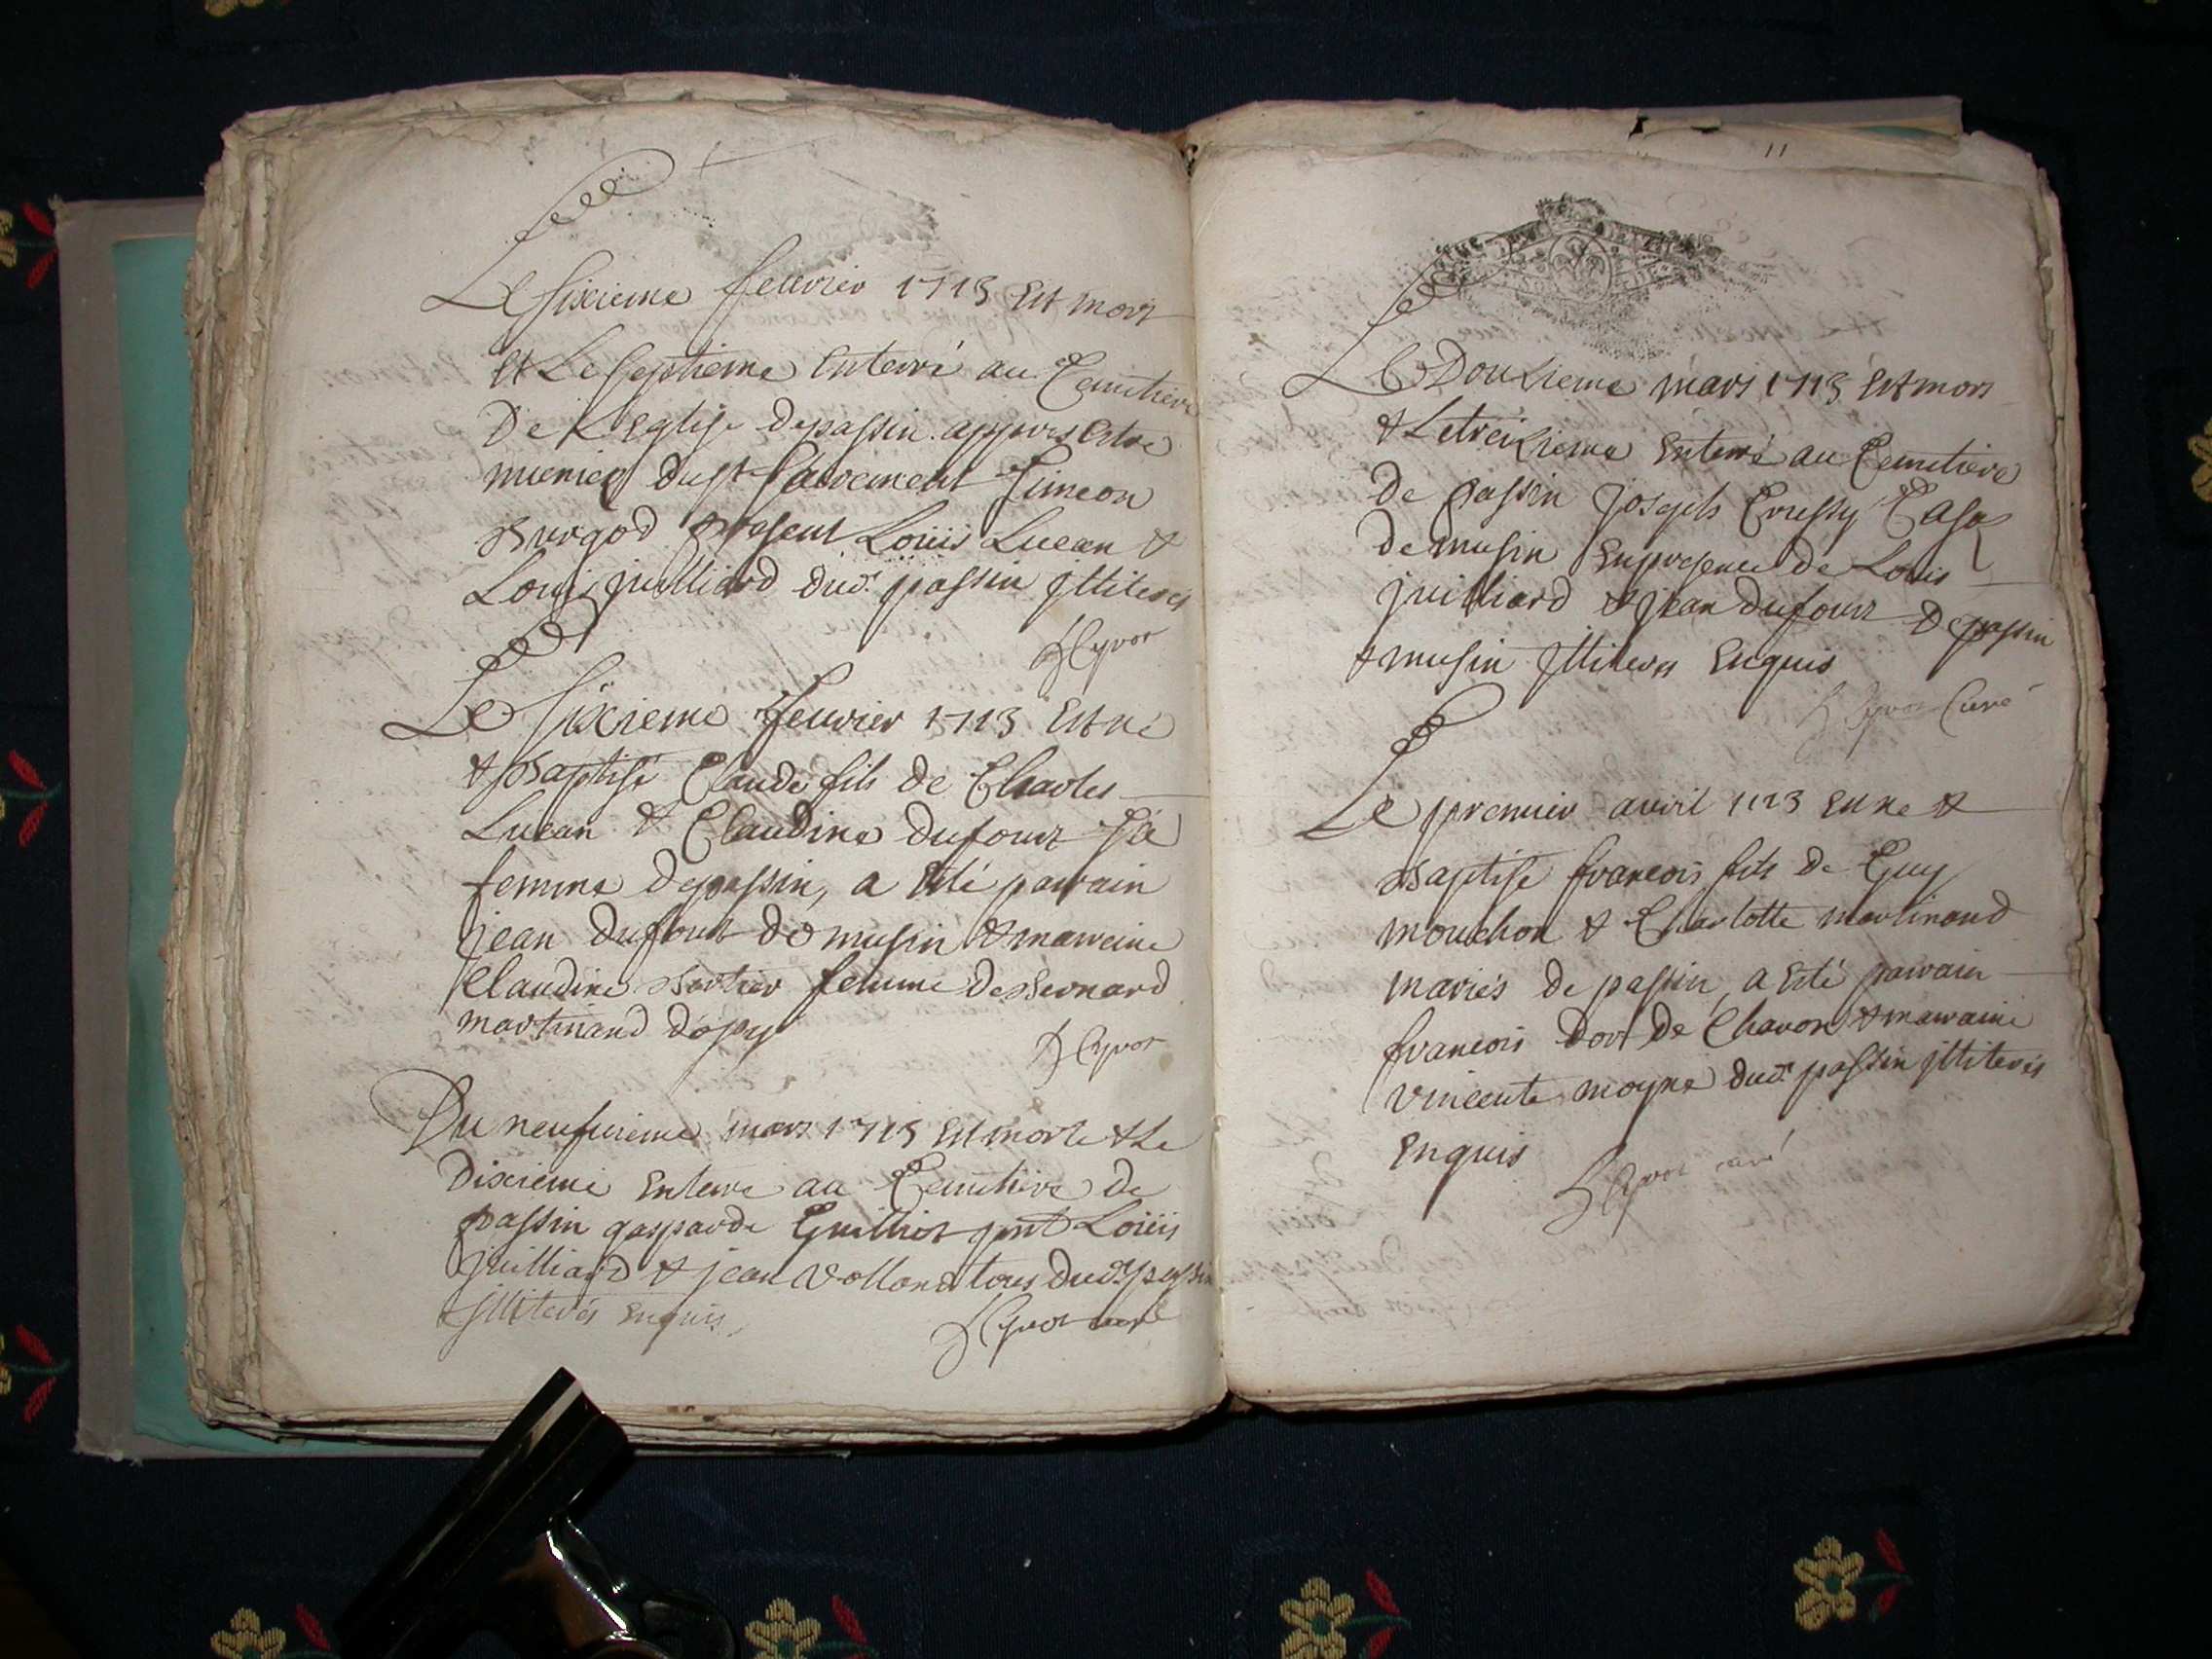 Le sixieme feuvrier 1713 Est mort
Et Le septieme Enterré au Cemitiere
De L'Eglise depassin appres Estre
munier du st Sacrement Simeon
Burgod present Loüis Lucan &
Louis juilliard dud. passin Illiteres
Hyvor
Le Sixieme feuvrier 1713 Est né
& Baptisé Claude fils de Charles
Lucan & Claudine dufour sa
femme depassin, a Esté parrain
jean dufour de musin & marreine
Claudine Bertier femme de Bernard
martinand
Hyvor
Du neufvieme mars 1713 Est morte & Le
Dixieme Enterre au Cemitiere de
passin gasparde Guilliot pnt Loüis
juilliard & jean Volland tous dud. passin
Illiterés Enquis
Hyvor curé
11
Le Douzieme mars 1713 Est mort
& Le treizieme Enterré au Cemitiere
de passin joseph Crussy
de musin Enpresence de Louis
juilliard & jean dufour de passin
& musin Illiteres Enquis
Hyvor Curé
Le premier avril 1713 Est ne &
Baptise francois fils de Guy
mouchon & Charlotte martinand
mariés de passin, a Esté parrain
francois Dort De Chavon & marraine
vincente moyne dud. passin Illiterés
Enquis
Hyvor curé